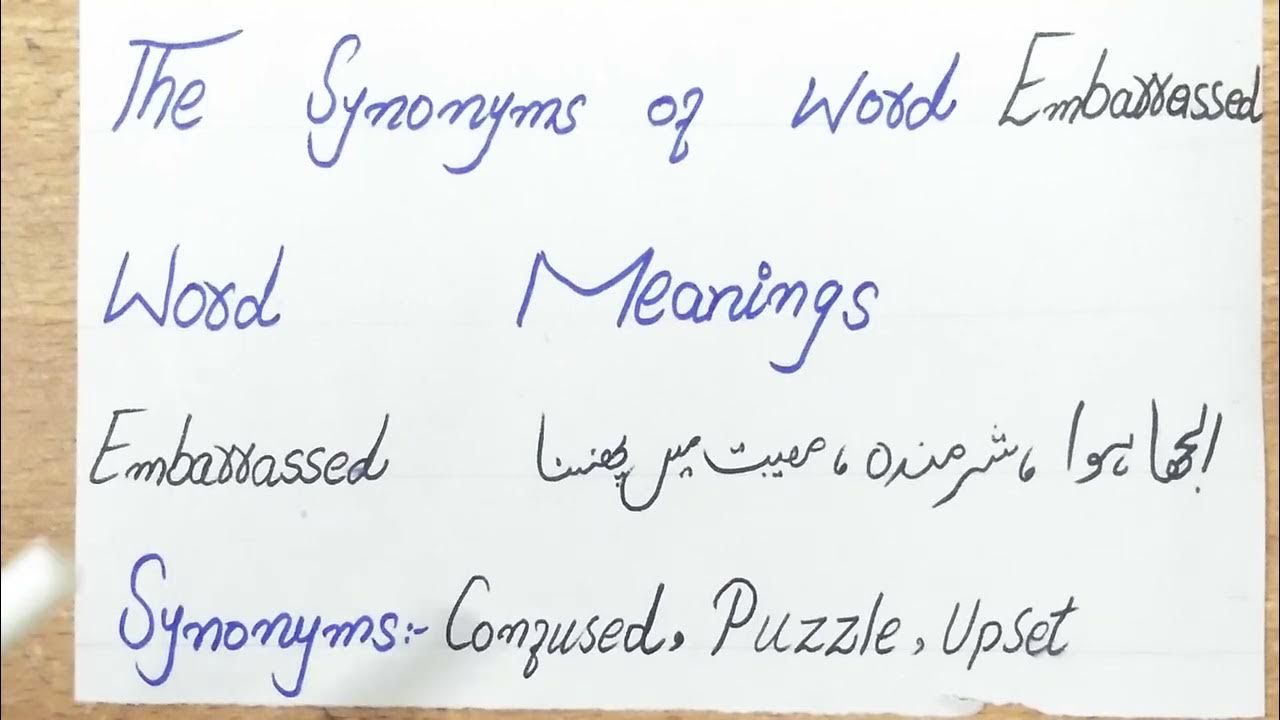 The Synonyms of Word Embarrassed
Word Meanings
Embarrassed الجھا ہوا ، شرمندہ ، مصیبت میں پھنسنا
Synonyms:- Confused, Puzzle, Upset